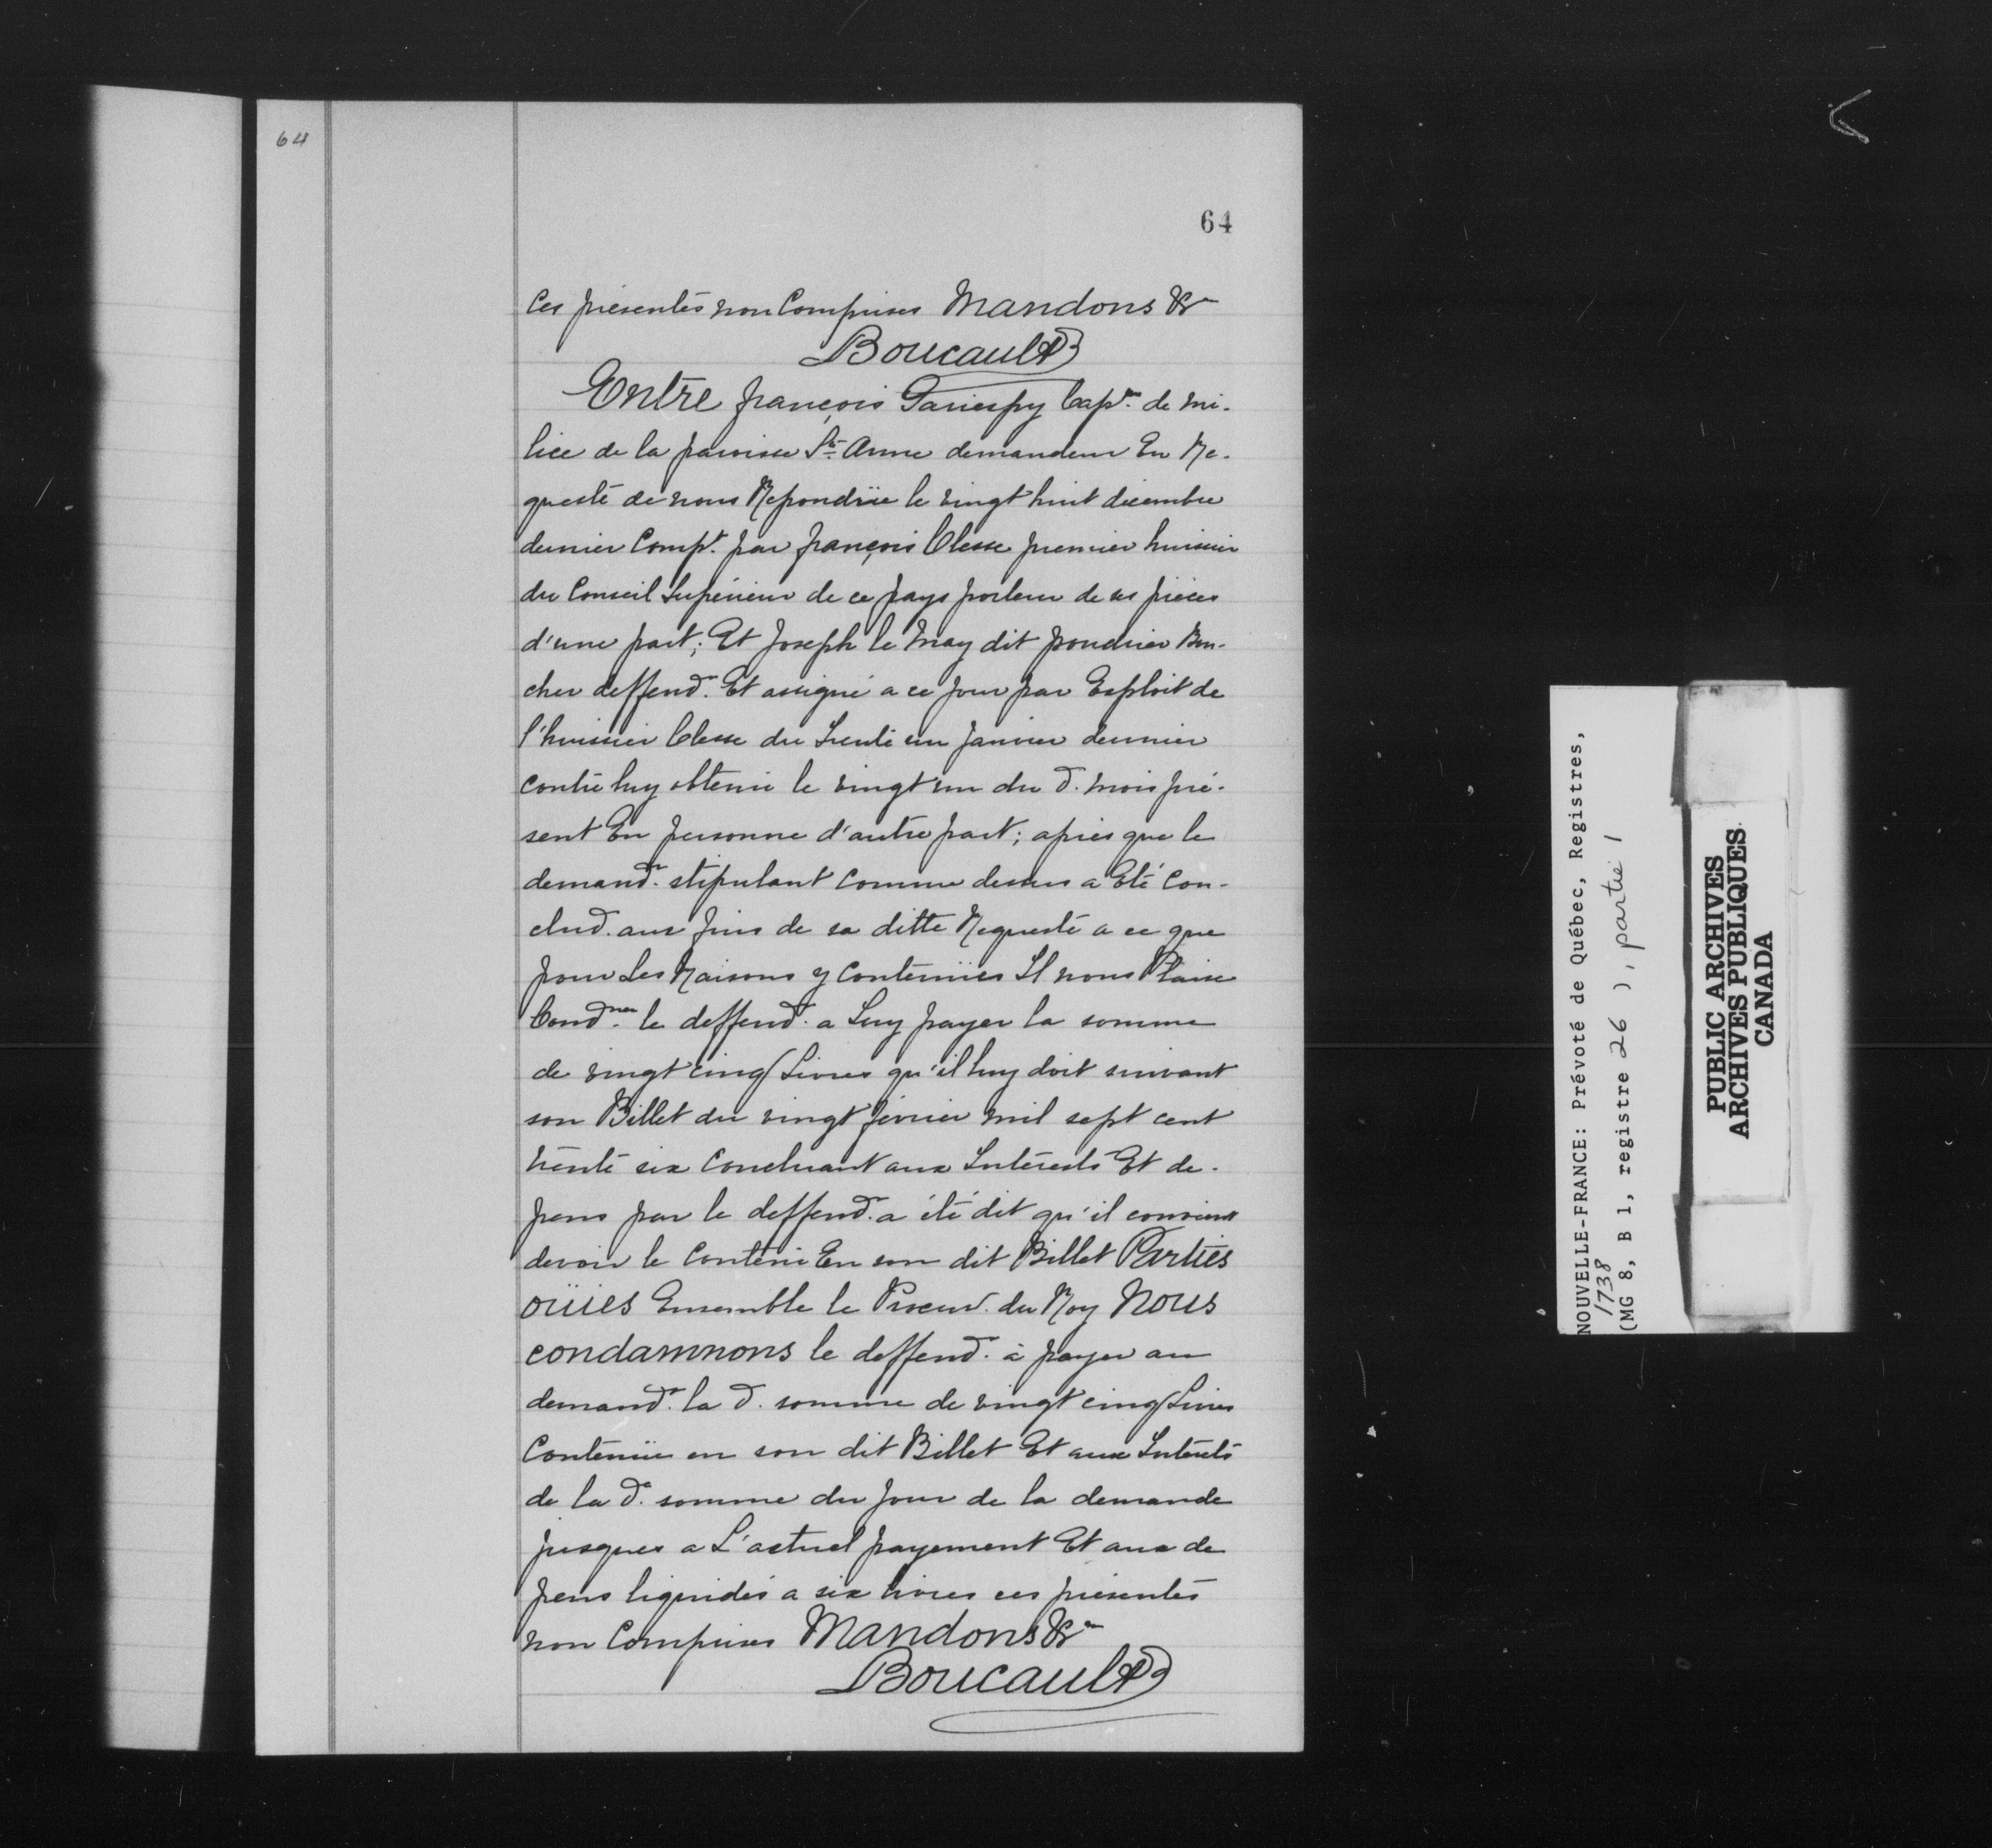 64
64
Ces présentés non Comprises Mandons &
Boucault
Entre françois Gariespy Capne. de mi-
lice de la paroisse Ste Anne demandeur En Re-
questé de nous Repondüe le vingt huit décembre
dernier Compt. par françois Clesse premier huissier
du Conseil Supérieur de ce pays porteur de ses pièces
d'une part; Et Joseph le May dit poudrier Bou-
cher deffendr. Et assigné a ce jour par Exploit de
l'huissier Clesse du Trente un Janvier dernier
contre luy obtenu le vingt un du d. mois pré-
sent En personne d'autre part; après que le
demandr. stipulant comme dessus a Eté Con-
clud. aux fins de sa ditte Requesté a ce que
pour Les Raisons y Contenües Il nous Plaise
Condner. le deffendr. a Luy payer la somme
de vingt cinq Livres qu'il luy doit suivant
son Billet du vingt février mil sept cent
trente six Concluant aux Intérests Et de-
pens par le deffendr. a été dit qu'il convient
devoir le Contenu En son dit Billet Parties
oüies Ensemble le Procur. du Roy Nous
condamnons le deffendr. à payer au
demandr. la d. somme de vingt cinq Livres
Contenüe en son dit Billet Et aux Intérets
de la d. somme du jour de la demande
jusques a L'actuel payement Et aux de
pens liquidés a six livres ces présentés
non Comprises Mandons &
Boucault
NOUVELLE-FRANCE: Prévoté de Québec, Registres,
1738
(MG 8, B 1, registre 26 ), partie 1
PUBLIC ARCHIVES
ARCHIVES PUBLIQUES
CANADA